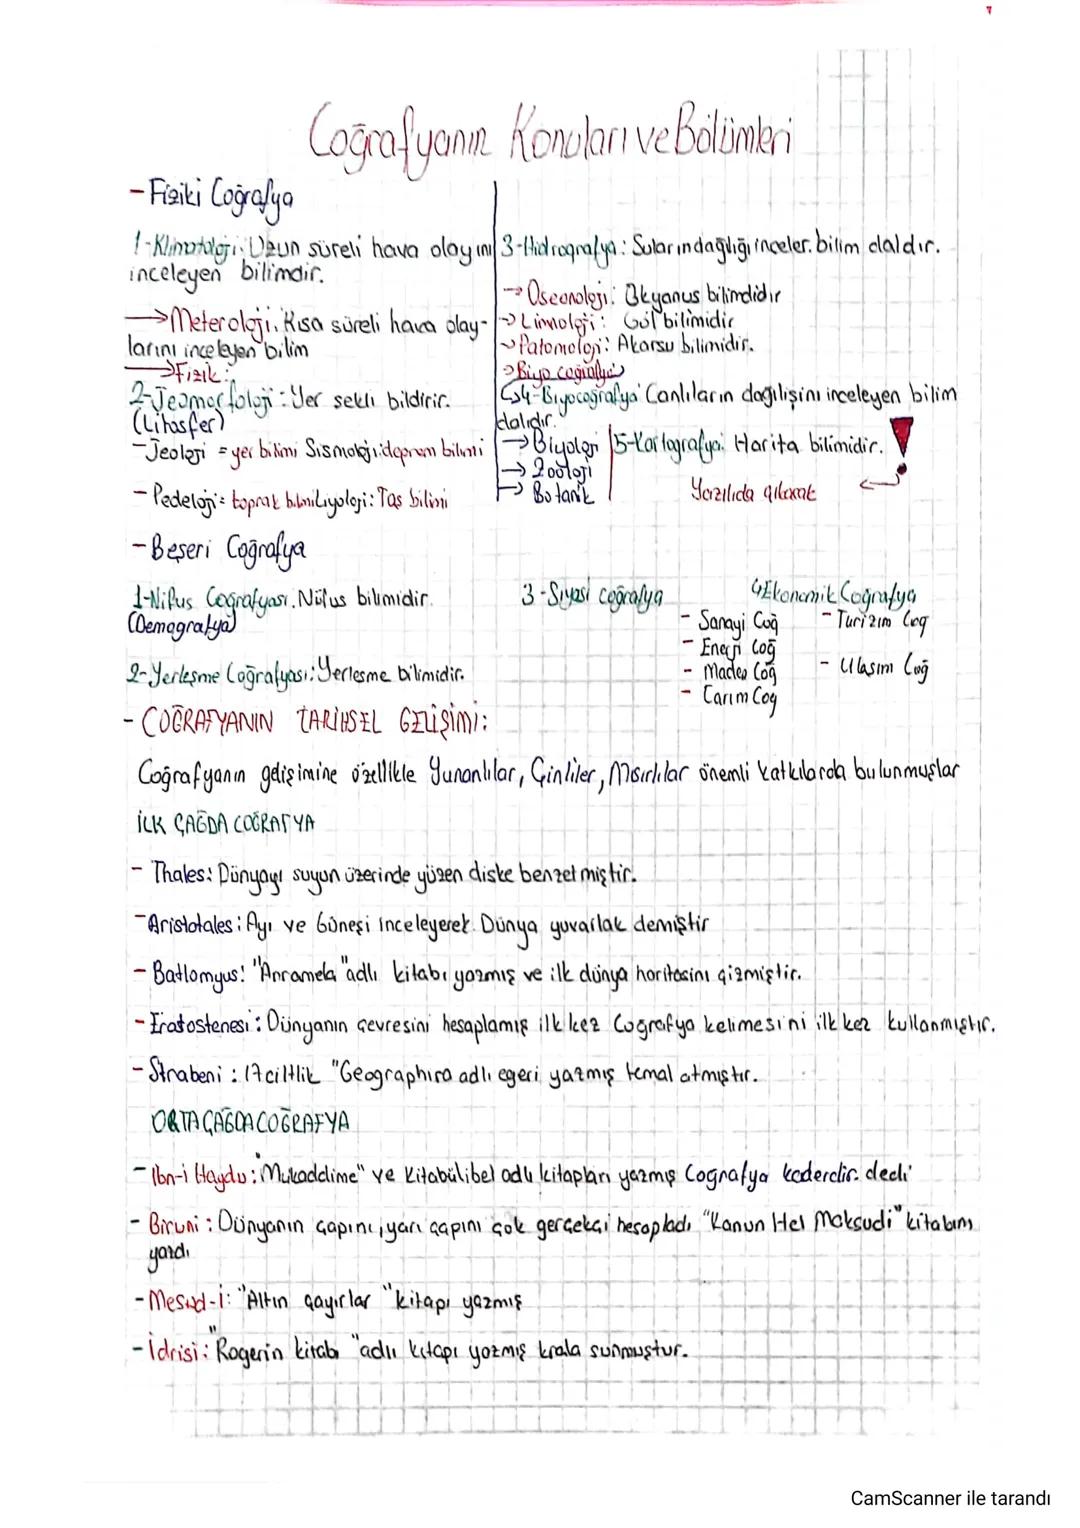 Coğrafyanın Konuları ve Bölümleri
- Fiziki Coğrafya
1-Klimatoloji: Uzun süreli hava olayını
inceleyen bilimdir.
→Meteroloji: Kısa süreli hava olay-
larını inceleyen bilim
→Fizik:
2-Jeomorfoloji: Yer şekli bildirir.
(Litosfer)
-Jeoloji = yer bilimi Sismoloji: deprem bilimi
- Pedeloji = toprak bilmi Liyoloji: Taş bilimi
3-Hidrografya: Suların dağlığı inceler. bilim daldır.
→ Oseonoloji: Okyanus bilimdidir
→ Limnoloji: Göl bilimidir
→ Patomoloji: Akarsu bilimidir.
→ Biyo coğrafya
4-Biyocoğrafya Canlıların dağılışını inceleyen bilim
dalıdır.
→ Biyoloji
→ Zooloji
→ Botanik
5-Kartografya: Harita bilimidir. !
Yazılıda çıkacak
- Beşeri Coğrafya
1-Nüfus Coğrafyası. Nüfus bilimidir.
(Demografya)
2-Yerleşme Coğrafyası: Yerleşme bilimidir.
3-Siyasi coğrafya
4Ekonomik Coğrafya
- Sanayi Coğ
- Enerji Coğ
- Maden Coğ
- Tarım Coğ
- Turizim Coğ
- Ulaşım Coğ
- COĞRAFYANIN TARİHSEL GELİŞİMİ:
Coğrafyanın gelişimine özellikle Yunanlılar, Çinliler, Mısırlılar önemli katkılarda bulunmuşlar
İLK ÇAĞDA COĞRAFYA
- Thales: Dünyayı suyun üzerinde yüzen diske benzetmiştir.
-Aristotales: Ayı ve Güneşi inceleyerek Dünya yuvarlak demiştir
- Batlomyus: "Anramela" adlı kitabı yazmış ve ilk dünya haritasını çizmiştir.
- Eratostenesi: Dünyanın çevresini hesaplamış ilk kez Coğrafya kelimesini ilk kez kullanmıştır.
- Strabeni: 17 ciltlik "Geographira adlı eseri yazmış temal atmıştır.
ORTA ÇAĞDA COĞRAFYA
- İbn-i Haydu: "Mukaddime" ve Kitabülibel adlı kitapları yazmış Coğrafya kaderdir. dedi
- Biruni: Dünyanın çapını, yarı çapını çok gerçekçi hesapladı "Kanun Hel Maksudi" kitabını
yazdı
- Mesud-i: "Altın çayırlar" kitapı yazmış
- İdrisi: "Rogerin kitabı "adlı kitapı yazmış krala sunmuştur.
CamScanner ile tarandı